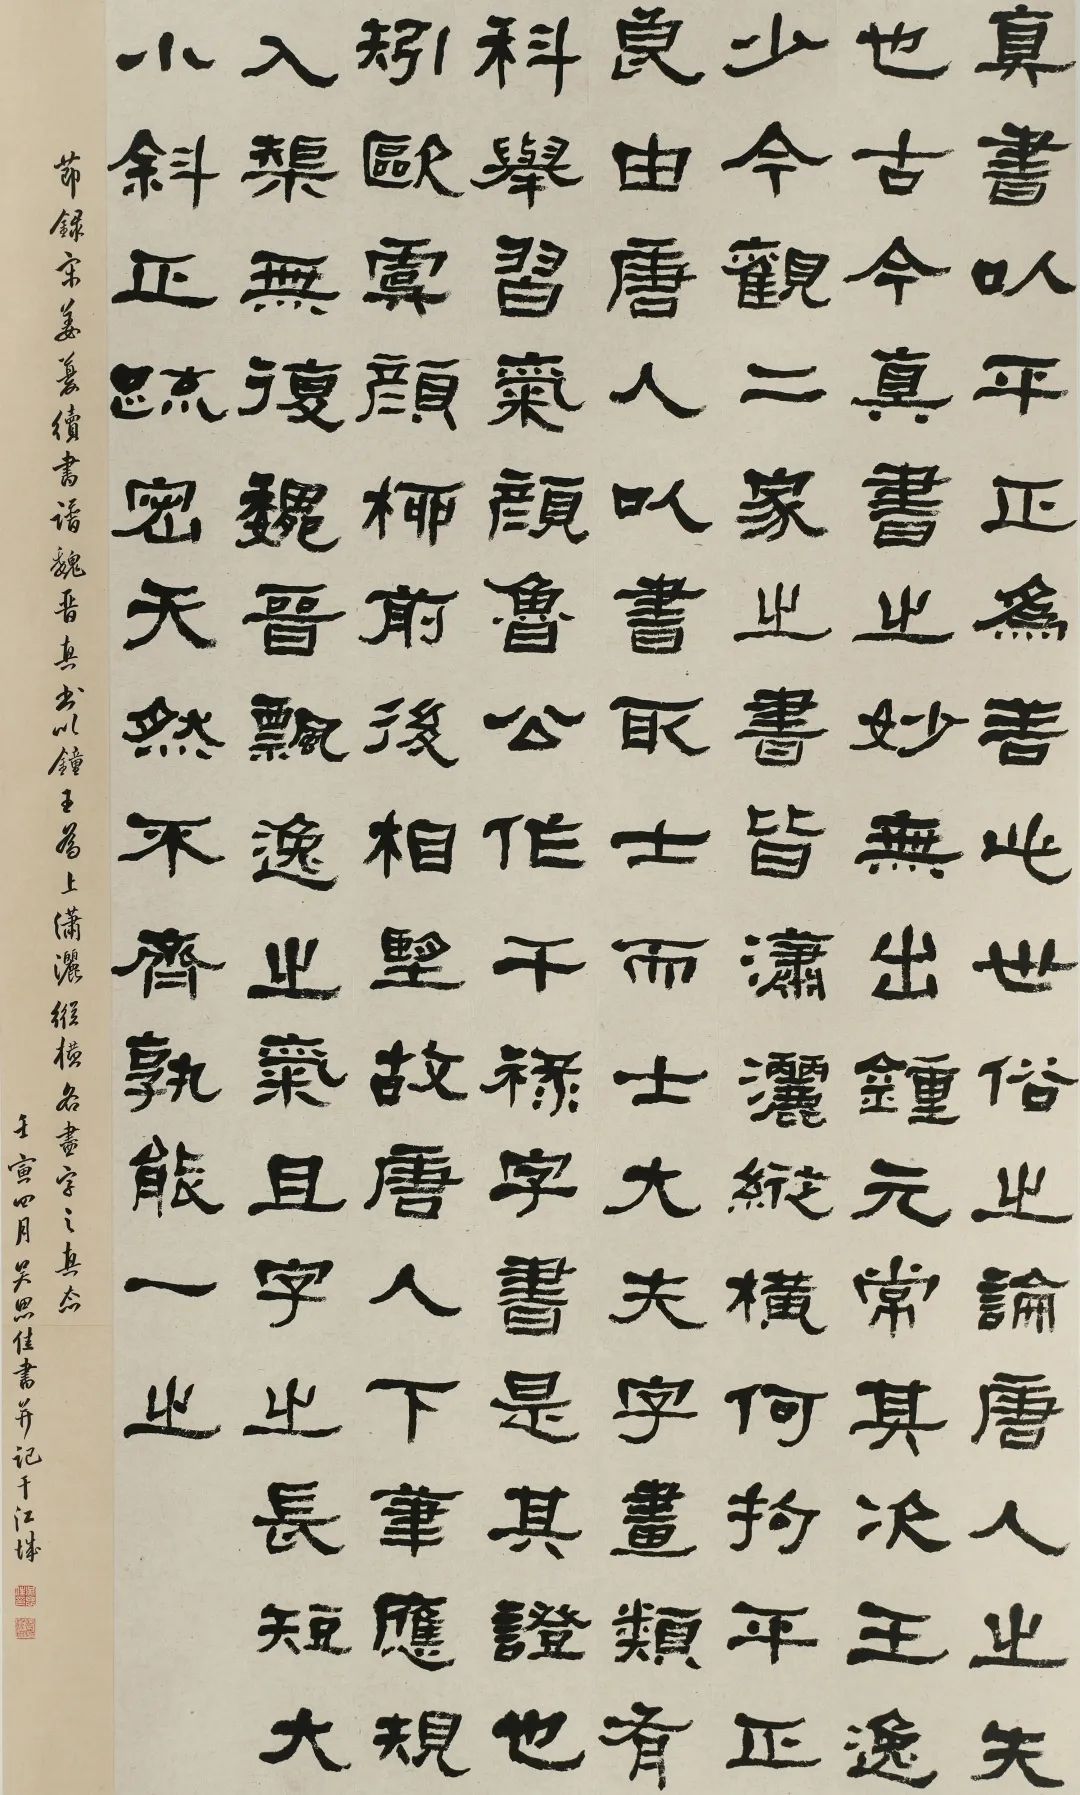 真書以平正為善此世俗之論唐人之失
也古今真書之妙無出鍾元常其次王逸
少今觀二家之書皆瀟灑縱橫何拘平正
良由唐人以書取士而士大夫字畫類有
科舉習氣顏魯公作干祿字書是其證也
矧歐虞顏柳前後相望故唐人下筆應規
入榘無復魏晉飄逸之氣且字之長短大
小斜正疏密天然不齊孰能一之
節録宋姜夔續書譜魏晋真书以鐘王為上瀟灑縱橫各盡字之真态
壬寅四月吴思佳書并記于江城